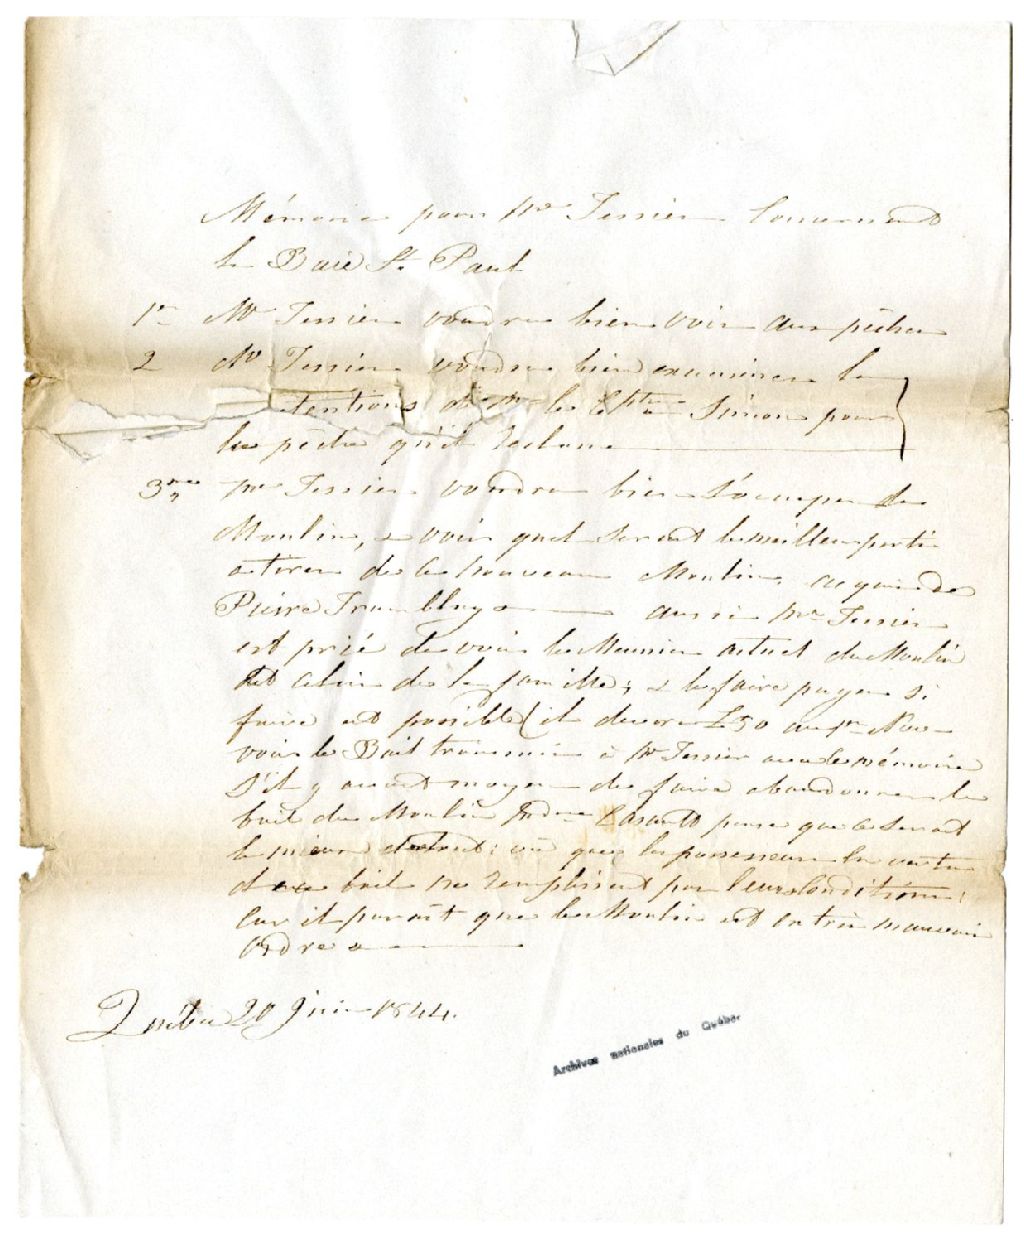 Mémoire pour Mr Tessier Concernant
la Baie St. Paul
1er Mr Tessier voudra bien voir aux pêches
2 Mr Tessier voudra bien examiner le
tentions de Mr le Cptn Simon pour
la pêche qu'il reclame
3me Mr Tessier voudra bien s'occuper du
Moulin, & voir quel serait le meilleur parti
a tirer de ce nouveau Moulin, acquis de
Pierre Tremblay aussi Mr Tessier
est prié de voir le Meunier actuel du Moulin
et celui de la famille, & le faire payer si
faire est possible (il devra £50 au 1er Nov
voir le Bail transmis à Mr Tessier avec le mémoire
S'il y avait moyen de faire abandonner le
bail du Moulin pense que ce serait
le mieux de tout; vu que les possesseurs en vertu
de ce bail ne remplissent pas leurs conditions;
Car il paroît que le Moulin est en très mauvais
Ordre
Québec 20 Juin 1844.
Archives nationales du Québec